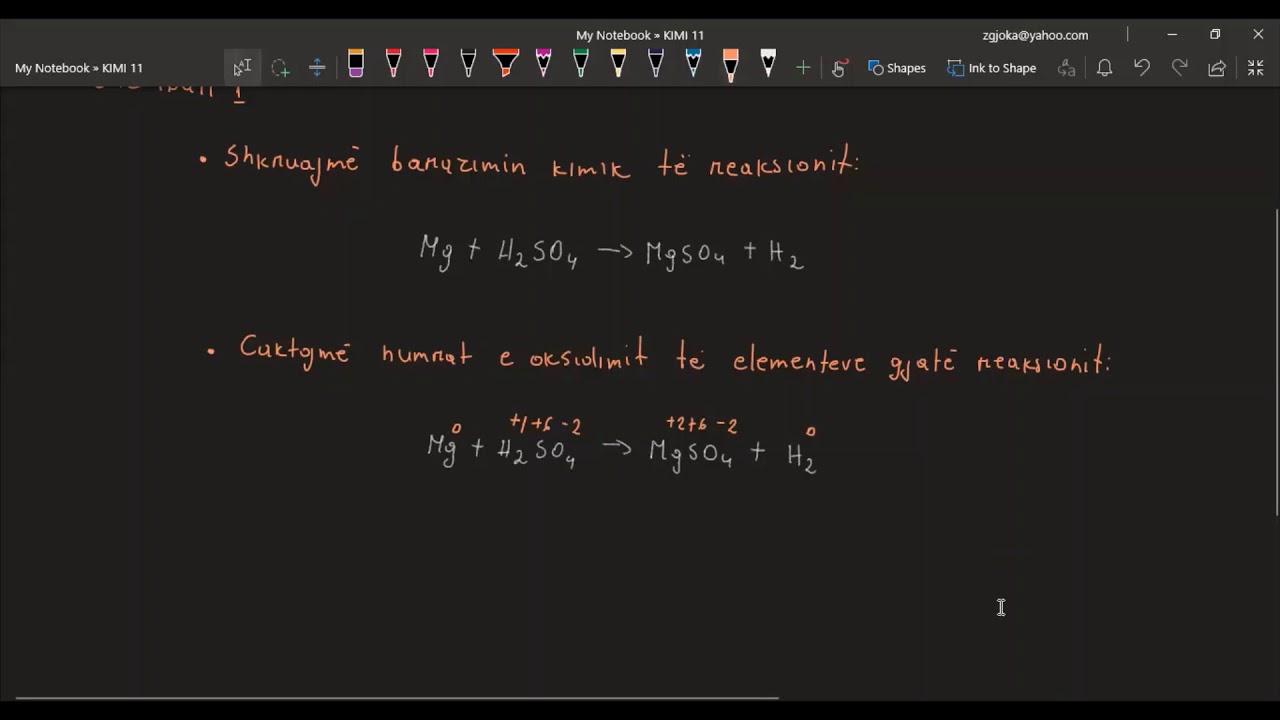 My Notebook » KIMI 11
zgjoka@yahoo.com
My Notebook » KIMI 11
Shapes
Ink to Shape
1
• Shkruajmë barazimin kimik të reaksionit:
Mg + H₂SO₄ → MgSO₄ + H₂
• Caktojmë numrat e oksidimit të elementeve gjatë reaksionit:
0 +1 +6 -2 +2 +6 -2 0
Mg + H₂SO₄ → MgSO₄ + H₂